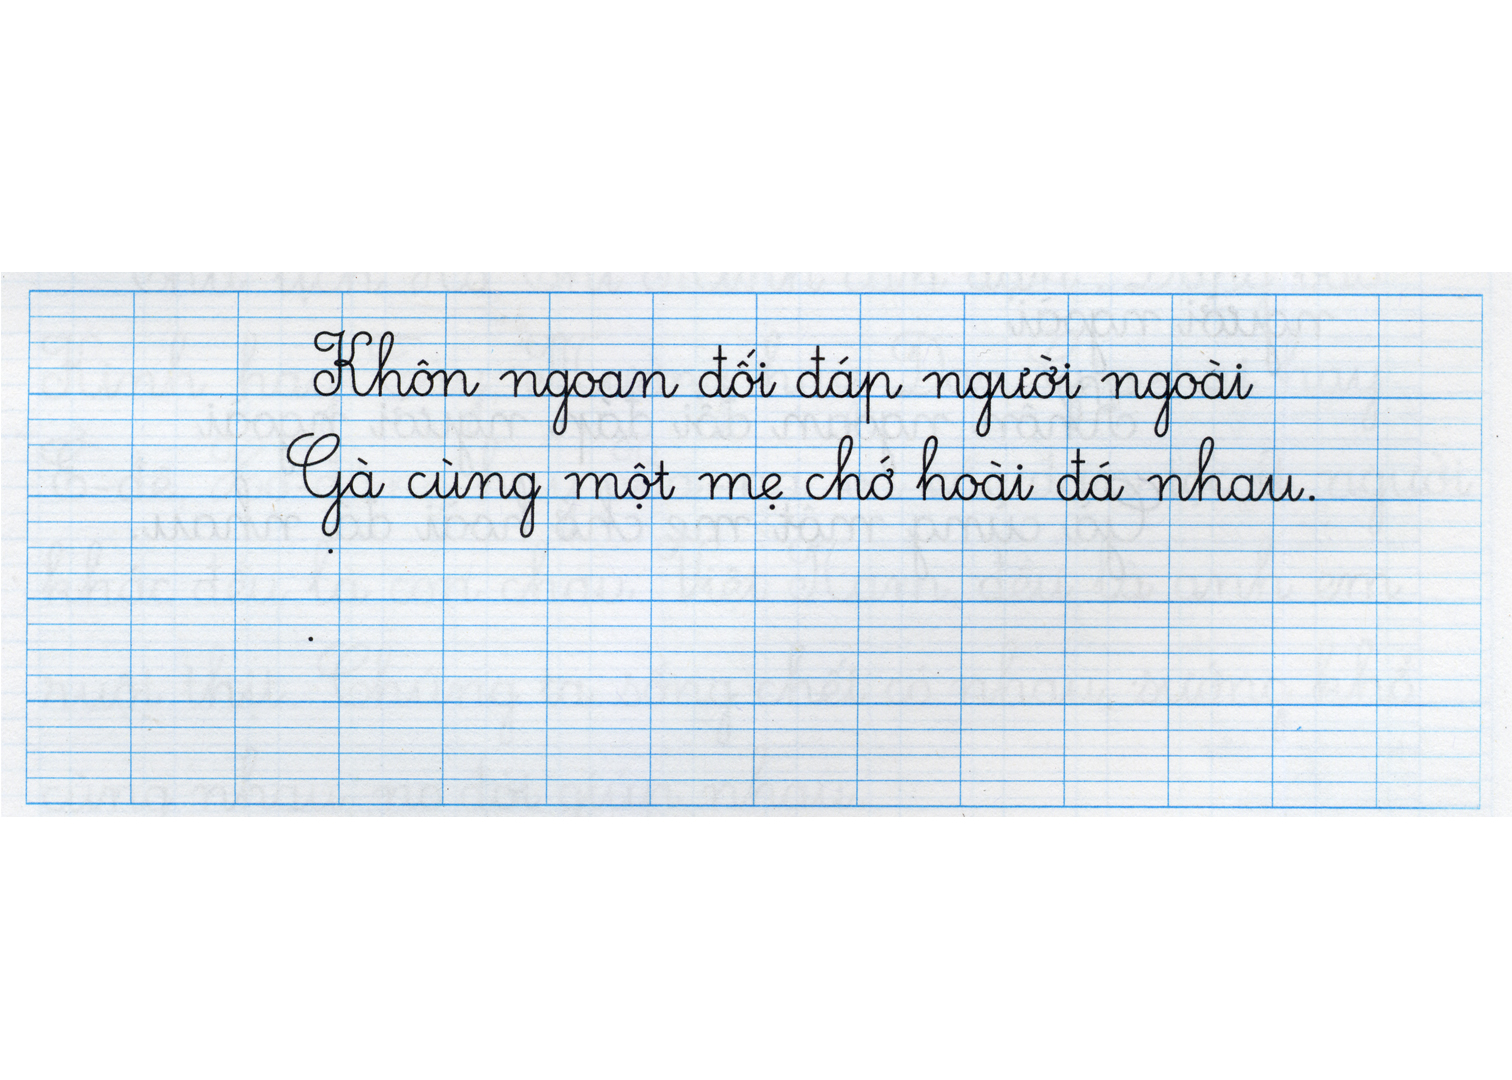 Khôn ngoan đối đáp người ngoài
Gà cùng một mẹ chớ hoài đá nhau.